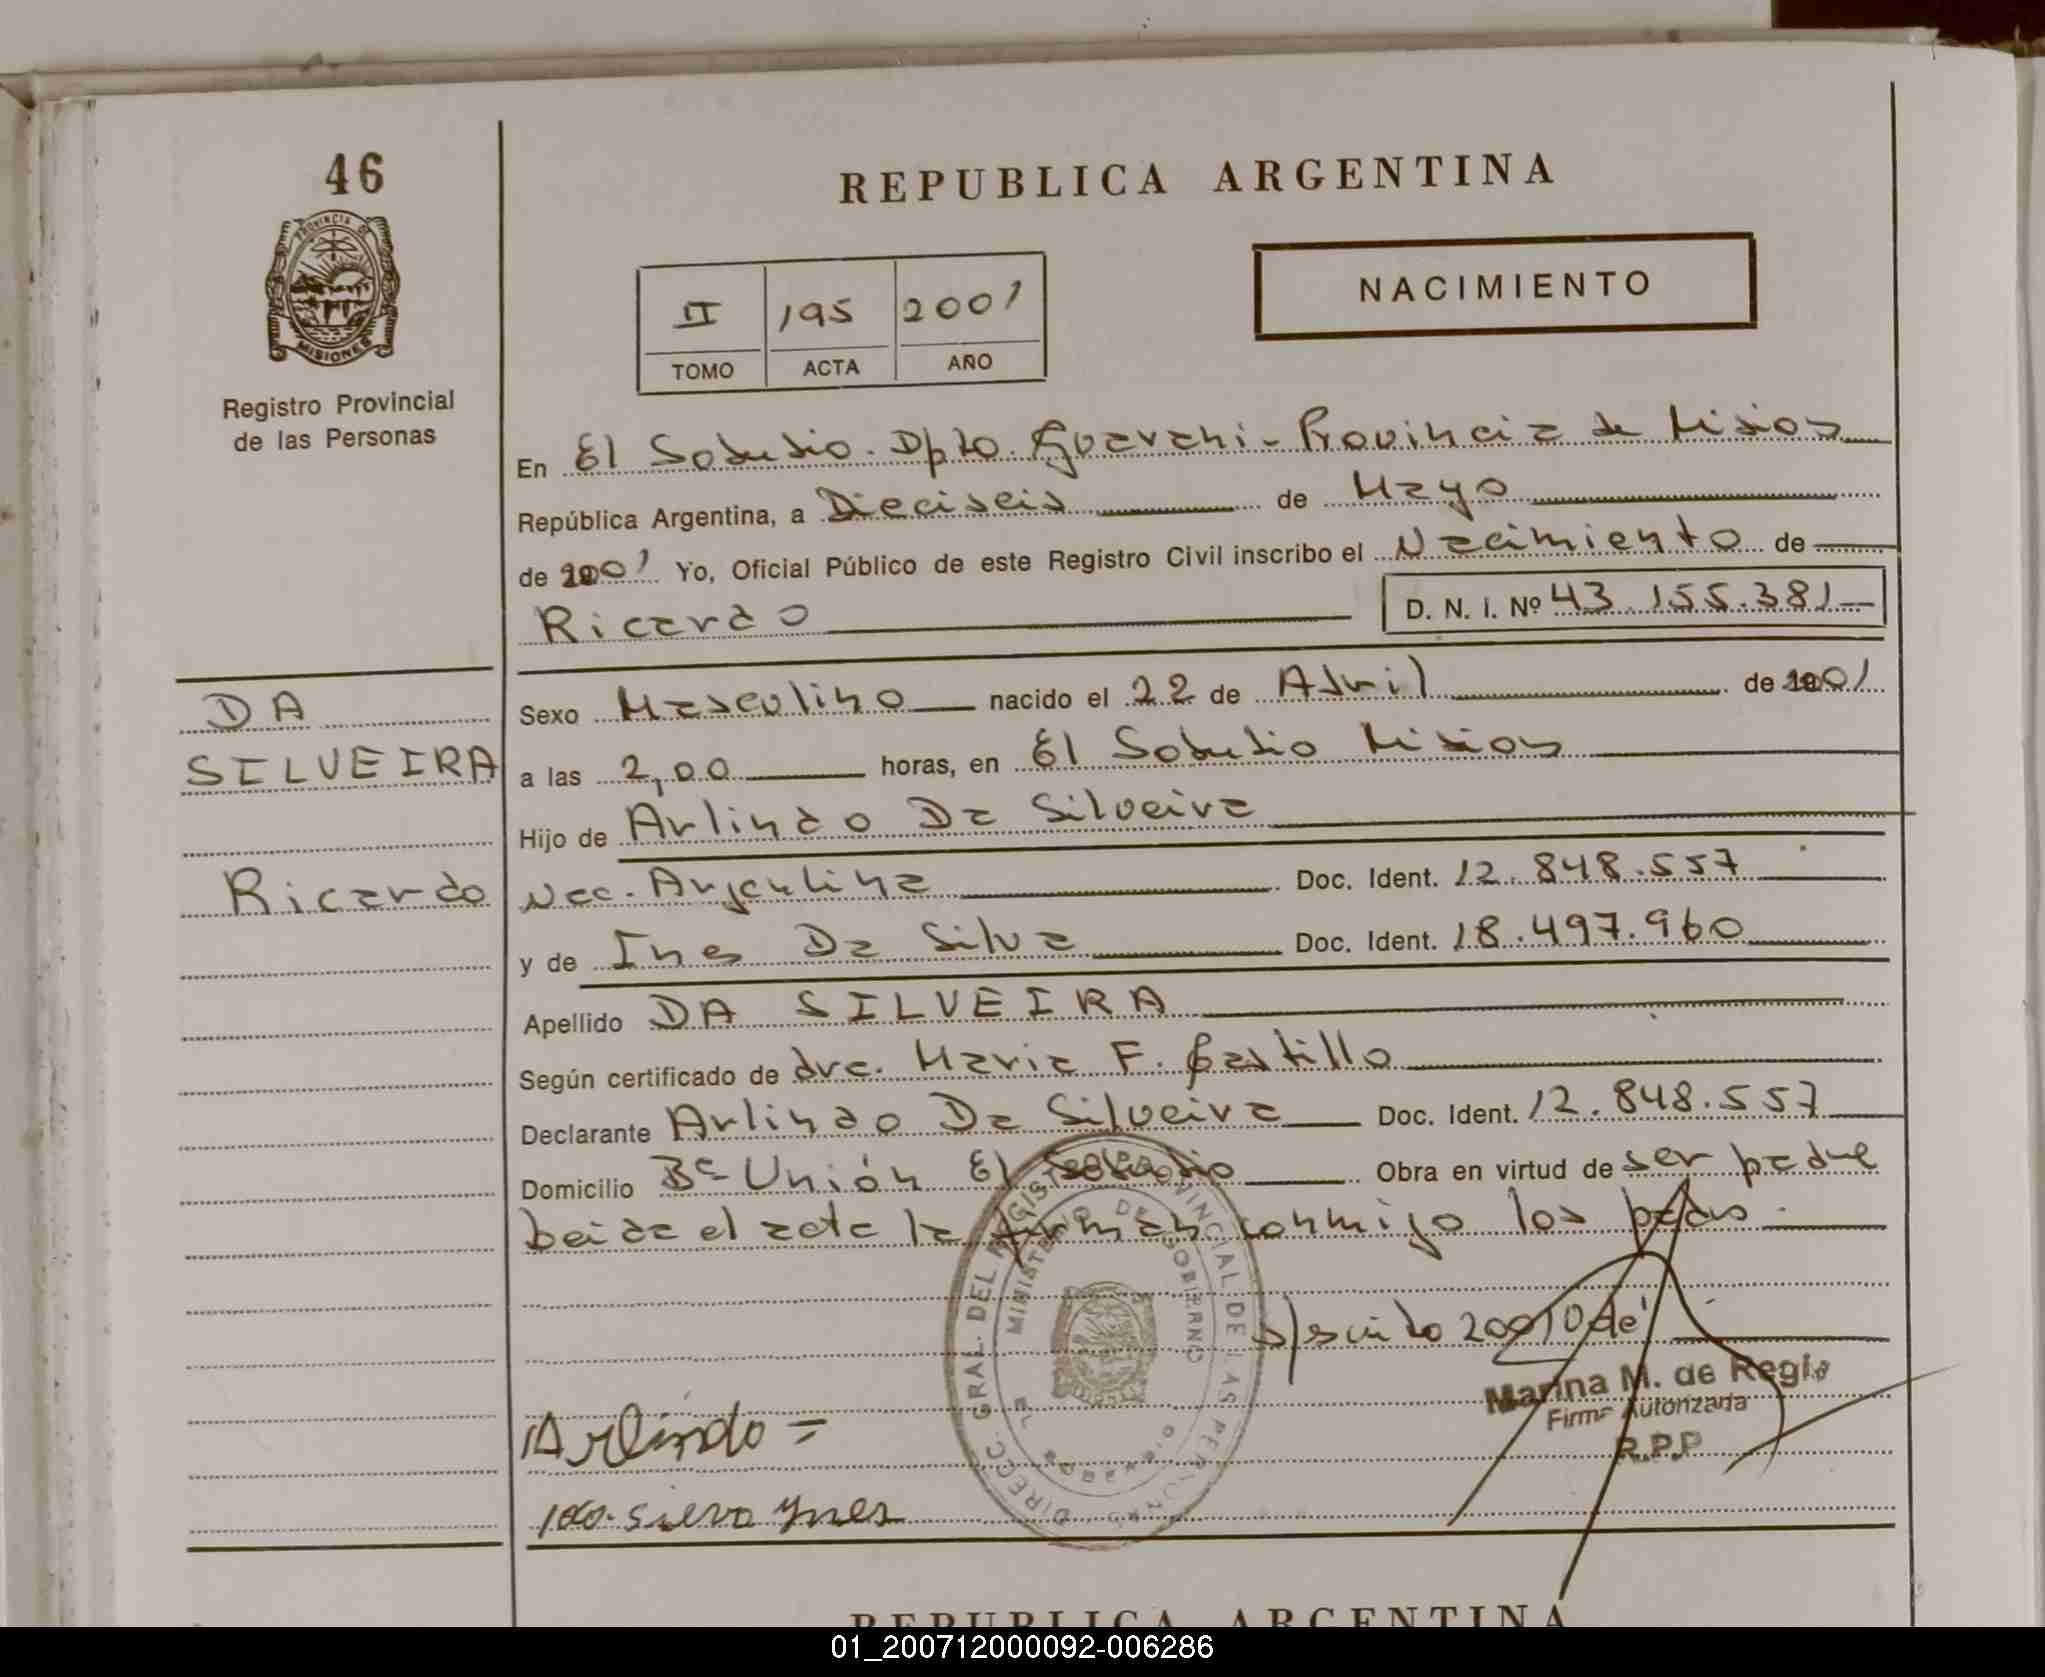 46
PROVINCIA DE
MISIONES
Registro Provincial
de las Personas
REPUBLICA ARGENTINA
II 195 2001
TOMO ACTA AÑO
NACIMIENTO
En El Soberbio. Dpto. Guarani - Provincia de Misiones
República Argentina, a Dieciseis de Mayo
de 2001 Yo, Oficial Público de este Registro Civil inscribo el Nacimiento de
Ricardo D. N. I. Nº 43.155.381
DA
SILVEIRA
Ricardo
Sexo Masculino nacido el 22 de Abril de 2001
a las 2,00 horas, en El Soberbio Misiones
Hijo de Arlindo Da Silveira
Nac. Argentina Doc. Ident. 12.848.557
y de Ines Da Silva Doc. Ident. 18.497.960
Apellido DA SILVEIRA
Según certificado de dra. Maria F. Castillo
Declarante Arlindo Da Silveira Doc. Ident. 12.848.557
Domicilio Bº Unión El Soberbio Obra en virtud de ser padre
Leida el acta la firman conmigo los padres
DIRECC. GRAL. DEL REGISTRO PROVINCIAL DE LAS PERSONAS
MINISTERIO DE GOBIERNO
EL SOBERBIO
Marina M. de Regis
Firma Autorizada
R.P.P
Arlindo =
silva ynes
REPUBLICA ARGENTINA
01_200712000092-006286